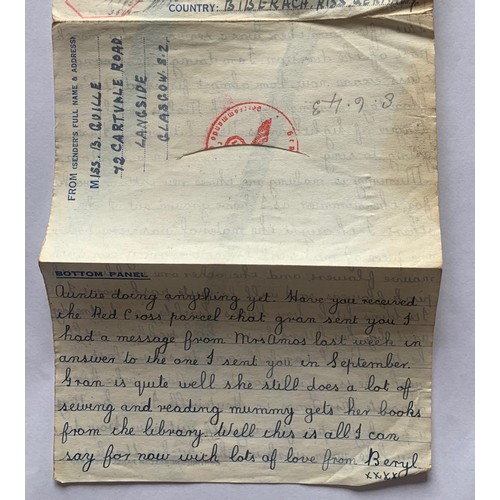 COUNTRY: BIBERACH. RISS. GERMANY
FROM (SENDER'S FULL NAME & ADDRESS)
MISS. B. QUILLE
72 CARTVALE ROAD
LANGSIDE
GLASGOW S.2.
8.6.43
BOTTOM PANEL
Auntie doing anything yet. Have you received
the Red Cross parcel that gran sent you I
had a message from Mrs Amos last week in
answer to the one I sent you in September.
Gran is quite well she still does a lot of
sewing and reading mummy gets her books
from the library. Well this is all I can
say for now with lots of love from Beryl
xxxx